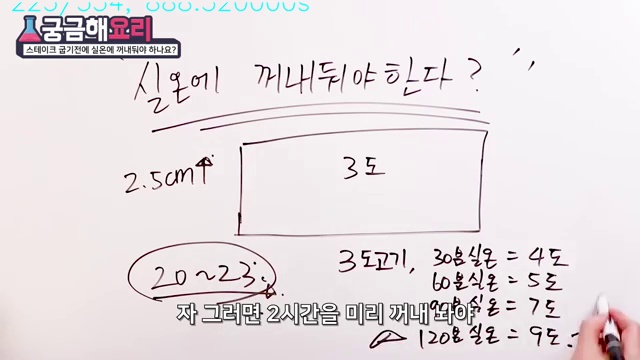 225/334, 888.520000s
궁금해요리
스테이크 굽기전에 실온에 꺼내둬야 하나요?
실온에 꺼내둬야한다?
2.5cm↑
3도
20~23
3도고기, 30분실온 = 4도
60분실온 = 5도
90분실온 = 7도
120분실온 = 9도
자 그러면 2시간을 미리 꺼내 놔야